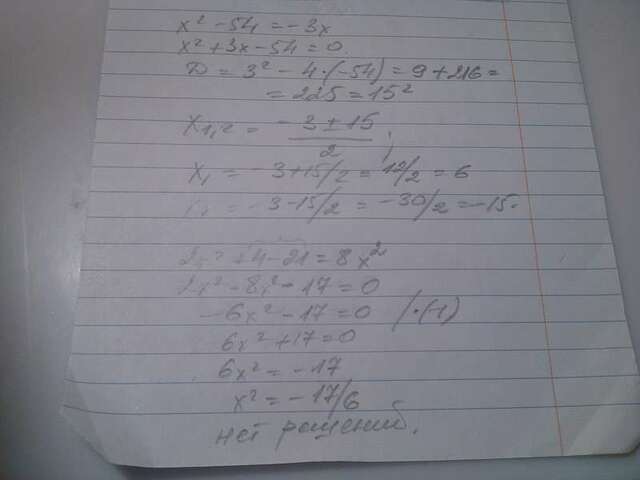 x² - 54 = -3x
x² + 3x - 54 = 0.
D = 3² - 4·(-54) = 9 + 216 =
= 225 = 15²
x₁,₂ = -3 ± 15 / 2 ;
x₁ = -3+15/2 = 12/2 = 6
= -3-15/2 = -30/2 = -15.
2x² + 4 - 21 = 8x²
2x² - 8x² - 17 = 0
-6x² - 17 = 0 /·(-1)
6x² + 17 = 0
6x² = -17
x² = -17/6
нет решений.